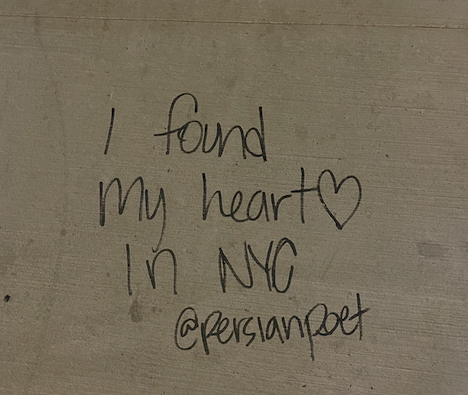 I found
My heart♡
In NYC
@persianpoet